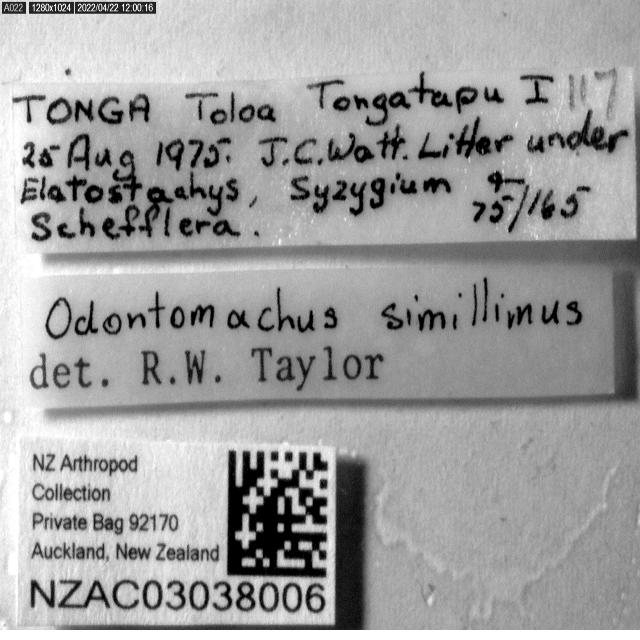 A022 1280x1024 2022/04/22 12:00:16
TONGA Toloa Tongatapu I 117
25 Aug 1975. J.C.Watt. Litter under
Elatostachys, Syzygium 75/165
Schefflera.
Odontomachus simillimus
det. R.W. Taylor
NZ Arthropod
Collection
Private Bag 92170
Auckland, New Zealand
NZAC03038006